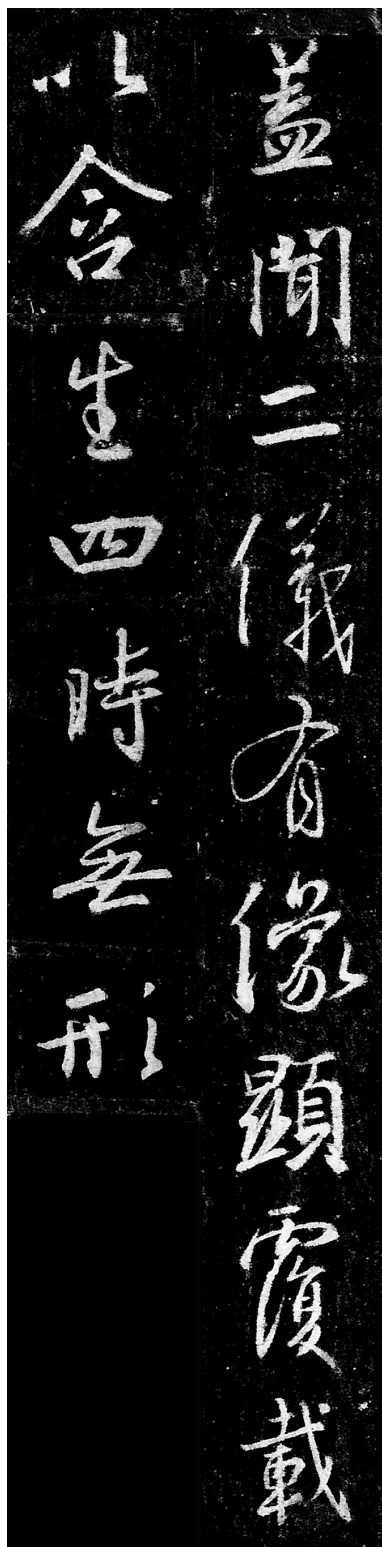 蓋聞二儀有像顯覆載
以含生四時無形